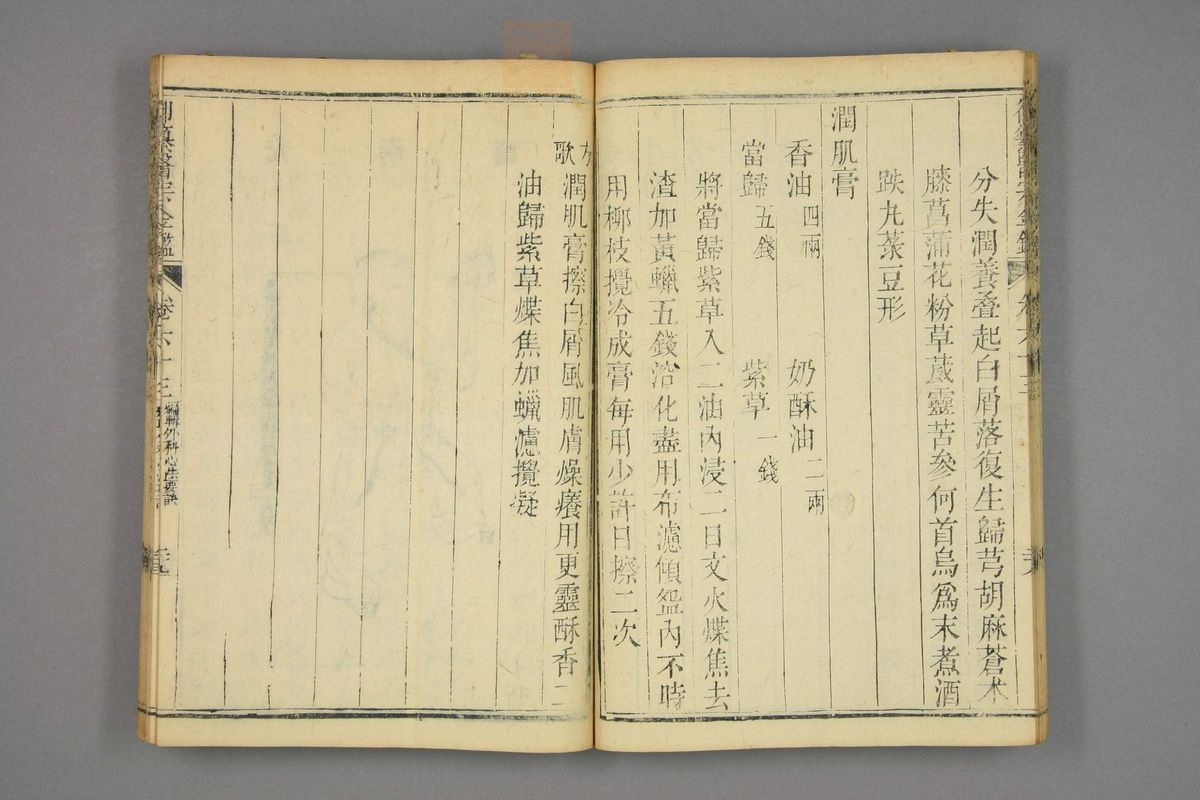 分失潤養叠起白屑落復生歸芎胡麻蒼朮
藤菖蒲花粉草葳靈苦參何首烏為末煮酒
跌丸菉豆形
潤肌膏
香油四兩 奶酥油二兩
當歸五錢 紫草一錢
將當歸紫草入二油內浸二日文火煠焦去
渣加黃蠟五錢溶化盡用布濾傾盌內不時
用柳枝攪冷成膏每用少許日擦二次
方歌 潤肌膏擦白屑風肌膚燥癢用更靈酥香二
油歸紫草煠焦加蠟濾攪凝
御纂醫宗金鑑 卷六十三 編輯外科心法要訣